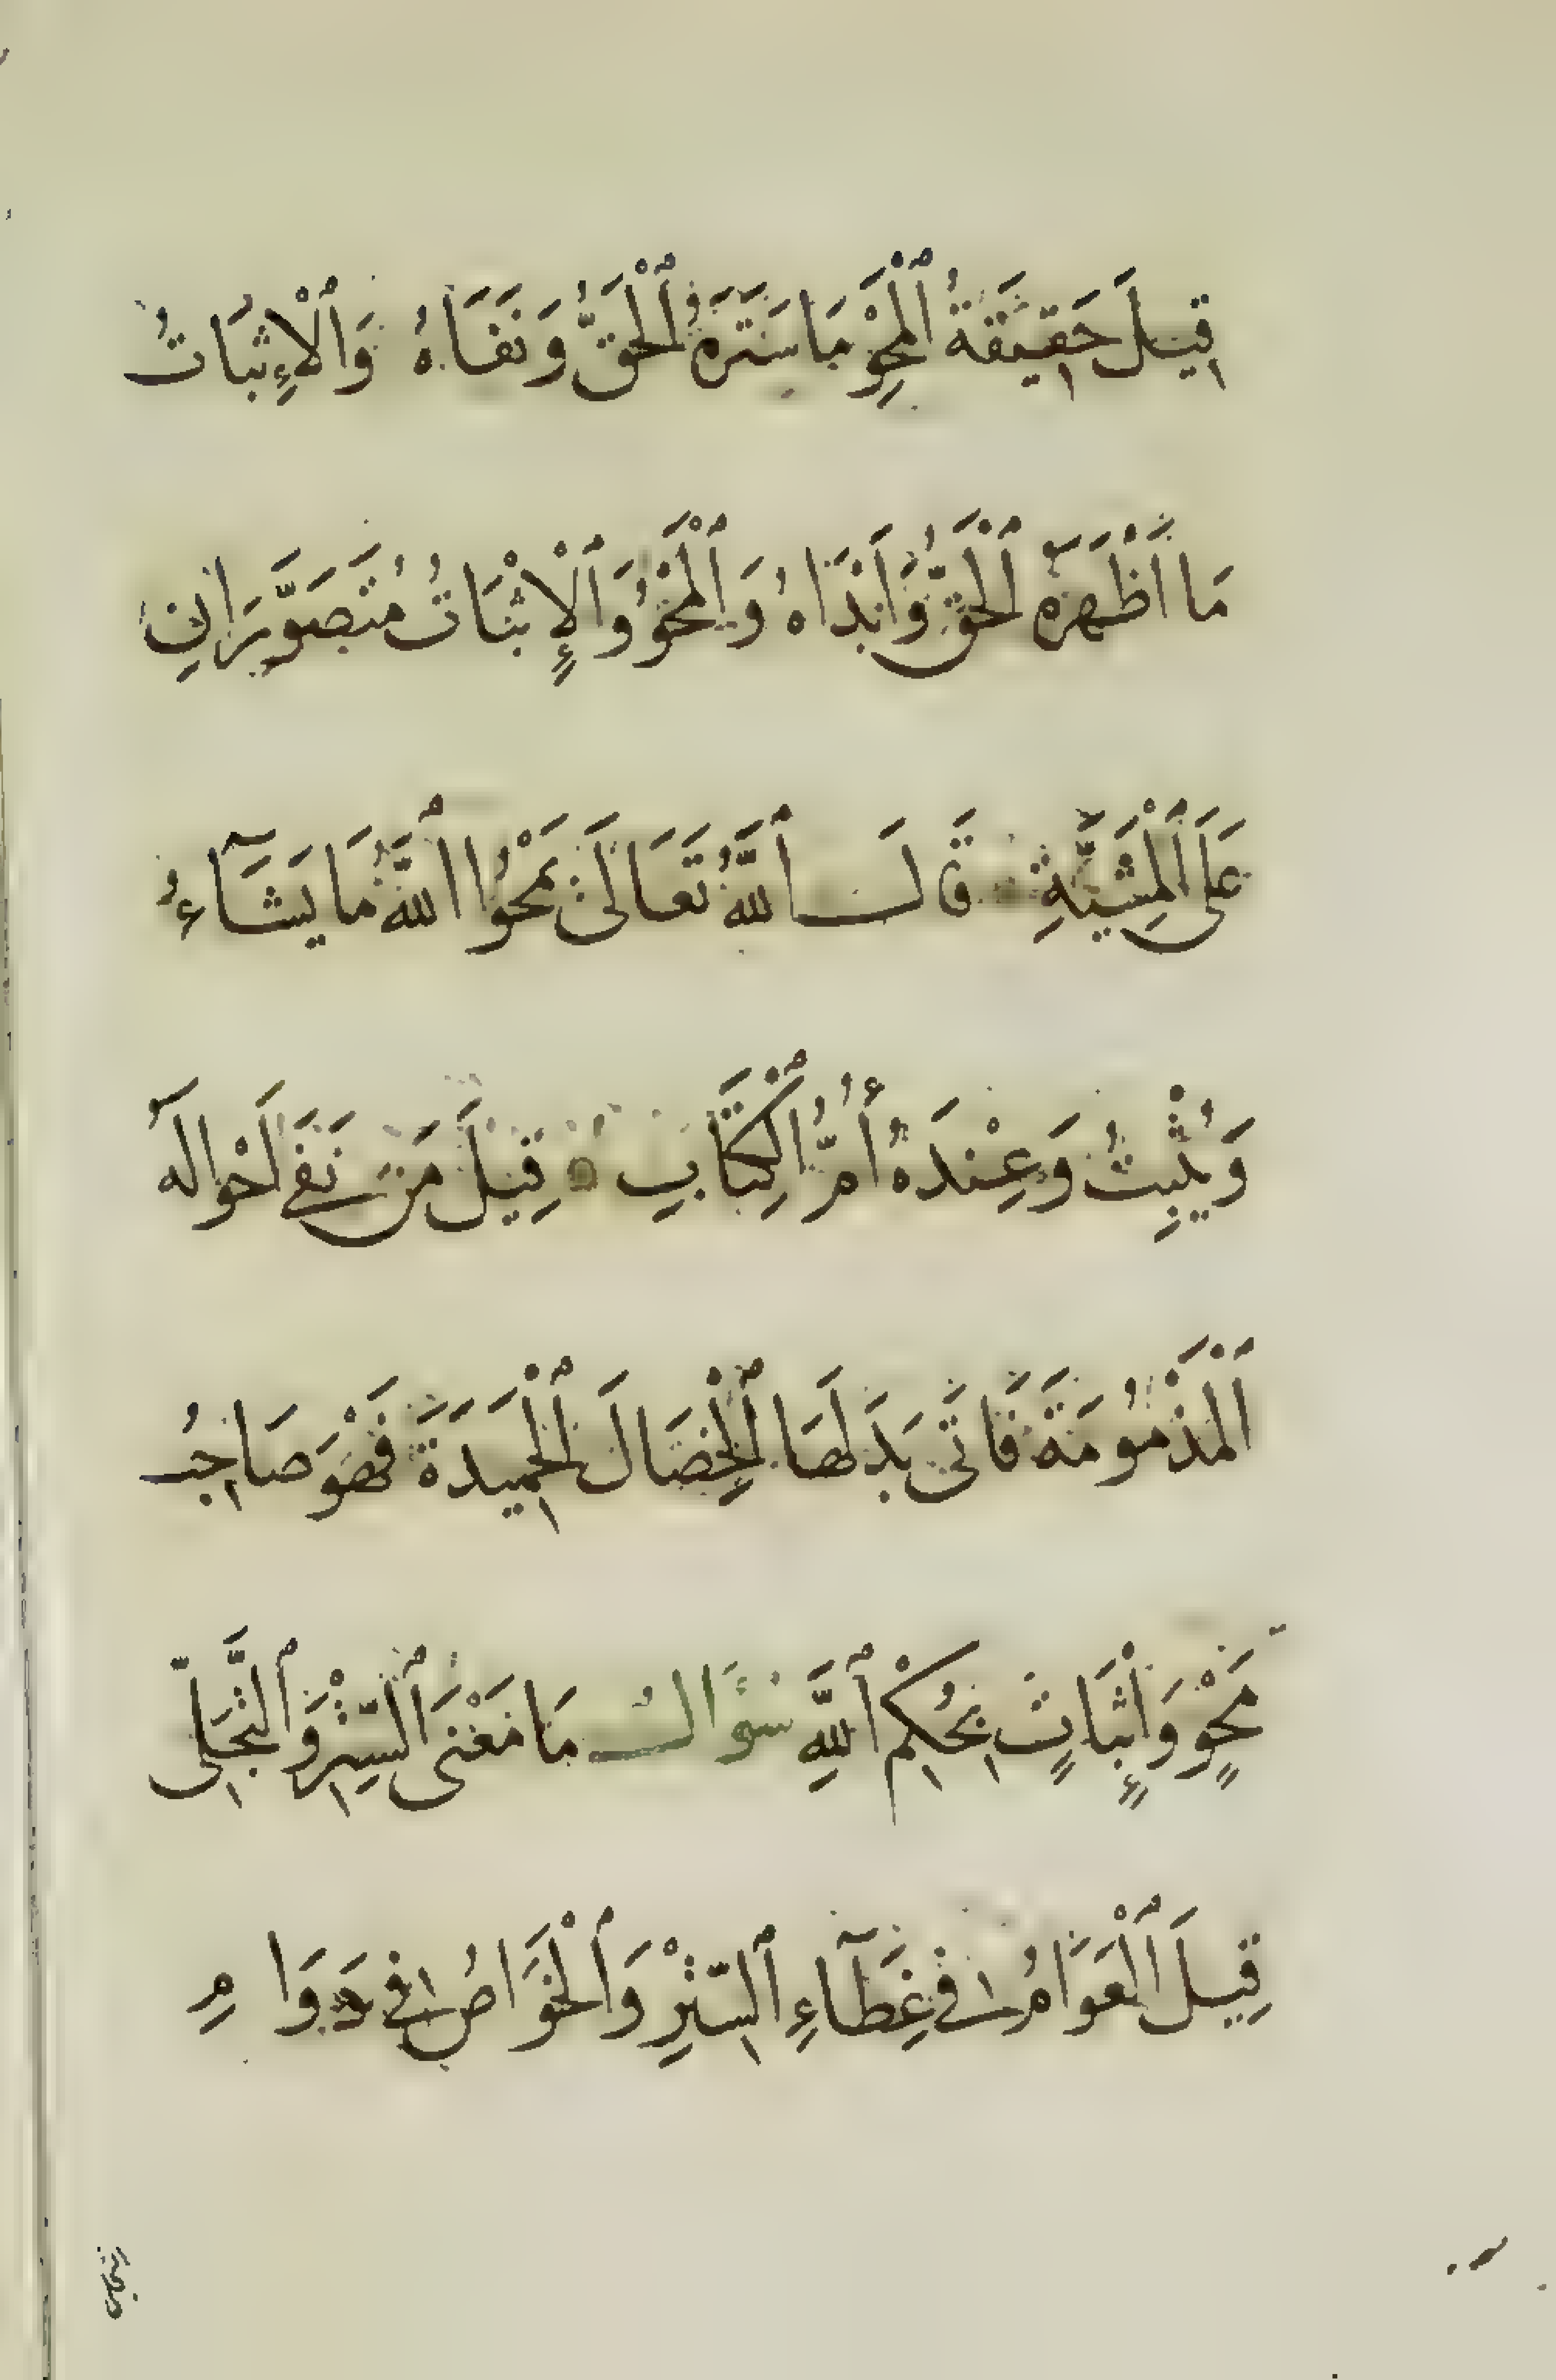 قِيلَ حَقِيقَةُ ٱلْمَحْوِ مَا سَتَرَهُ ٱلْحَقُّ وَنَفَاهُ وَٱلْإِثْبَاتُ
مَا أَظْهَرَهُ ٱلْحَقُّ وَأَبْدَاهُ وَٱلْمَحْوُ وَٱلْإِثْبَاتُ مُتَصَوَّرَانِ
عَلَى ٱلْمَشِيَّةِ قَالَ ٱللَّهُ تَعَالَى يَمْحُوا ٱللَّهُ مَا يَشَآءُ
وَيُثْبِتُ وَعِنْدَهُ أُمُّ ٱلْكِتَابِ ه قِيلَ مَنْ نَفَى أَحْوَالَهُ
ٱلْمَذْمُومَةَ فَأَتَى بَدَلَهَا ٱلْخِصَالَ ٱلْحَمِيدَةَ فَهُوَ صَاحِبُ
مَحْوٍ وَإِثْبَاتٍ بِحُكْمِ ٱللَّهِ سُؤَالٌ مَا مَعْنَى ٱلسِّتْرِ وَٱلتَّجَلِّى
قِيلَ ٱلْعَوَامُ فِى غِطَآءِ ٱلسِّتْرِ وَٱلْخَوَاصُ فِى دَوَامِ